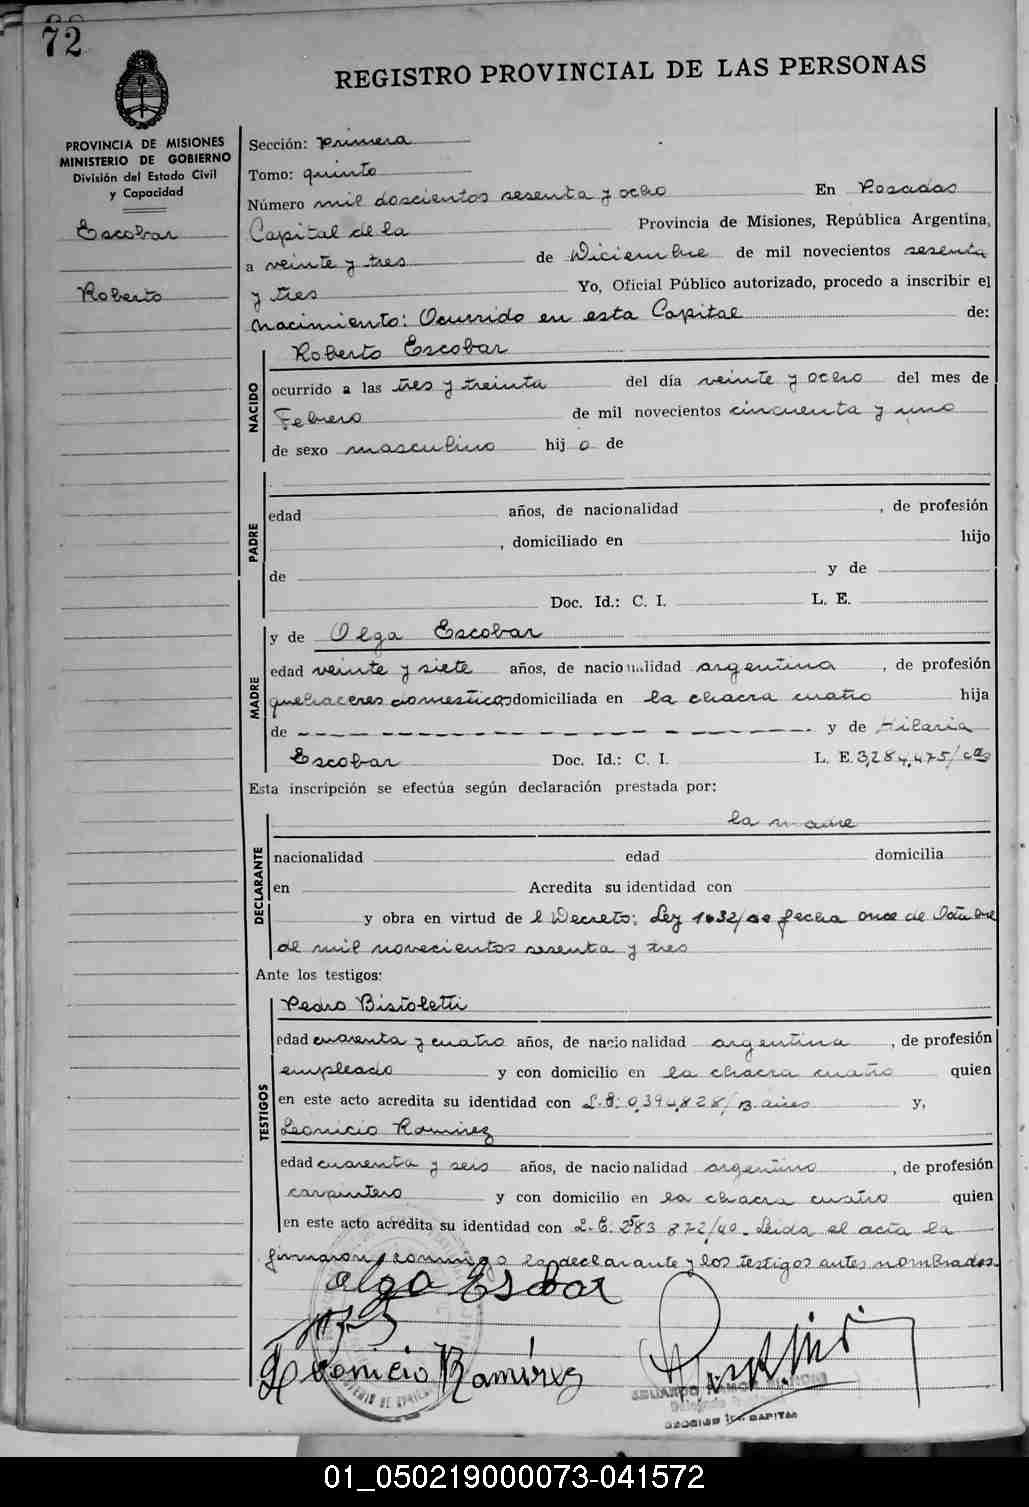 72
REGISTRO PROVINCIAL DE LAS PERSONAS
PROVINCIA DE MISIONES
MINISTERIO DE GOBIERNO
División del Estado Civil
y Capacidad
Escobar
Roberto
Sección: primera
Tomo: quinto
Número mil doscientos sesenta y ocho En Posadas
Capital de la Provincia de Misiones, República Argentina,
a veinte y tres de Diciembre de mil novecientos sesenta
y tres Yo, Oficial Público autorizado, procedo a inscribir el
nacimiento: Ocurrido en esta Capital de:
NACIDO
Roberto Escobar
ocurrido a las tres y treinta del día veinte y ocho del mes de
Febrero de mil novecientos cincuenta y uno
de sexo masculino hij o de
PADRE
edad años, de nacionalidad , de profesión
, domiciliado en hijo
de y de
Doc. Id.: C. I. L. E.
MADRE
y de Olga Escobar
edad veinte y siete años, de nacionalidad argentina , de profesión
quehaceres domesticos domiciliada en la chacra cuatro hija
de y de Hilaria
Escobar Doc. Id.: C. I. L. E. 3,284,475/
Esta inscripción se efectúa según declaración prestada por:
la madre
DECLARANTE
nacionalidad edad domicilia
en Acredita su identidad con
y obra en virtud de l Decreto: Ley de fecha once de Octubre
de mil novecientos sesenta y tres
Ante los testigos:
TESTIGOS
Pedro Bistoletti
edad cuarenta y cuatro años, de nacionalidad argentina , de profesión
empleado y con domicilio en la chacra cuatro quien
en este acto acredita su identidad con L.E: 0,394,828/B. aires y,
Leonicio Ramirez
edad cuarenta y seis años, de nacionalidad argentino , de profesión
carpintero y con domicilio en la chacra cuatro quien
en este acto acredita su identidad con L.E. Leida el acta la
firmaron conmigo la declarante y los testigos antes nombrados
Olga Escobar
Leonicio Ramírez
01_050219000073-041572